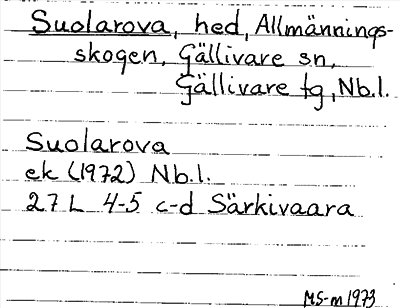 Suolarova, hed, Allmännings-
skogen, Gällivare sn,
Gällivare tg, Nb.l.
Suolarova
ek (1972) Nb.l.
27 L 4-5 c-d Särkivaara
MS-m 1973